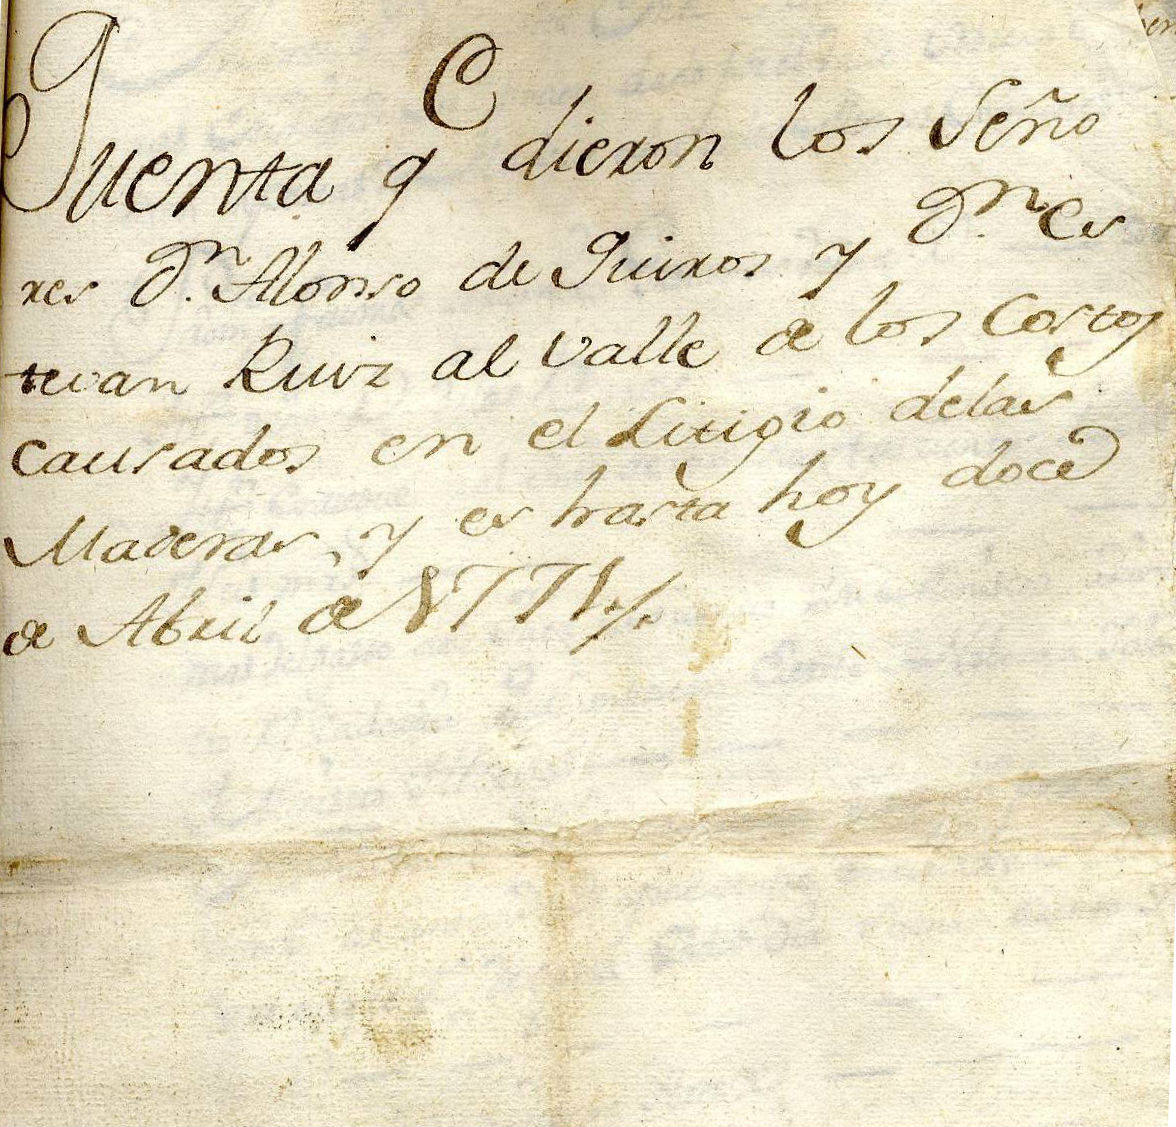 Cuenta q^e dieron los Seño
res D^n. Alonso de Quiros y D^n. Es
tevan Ruiz al Valle de los Costos
Causados en el Litigio delas
Maderas, y es hasta hoy doce
de Abril de 1771,,/.